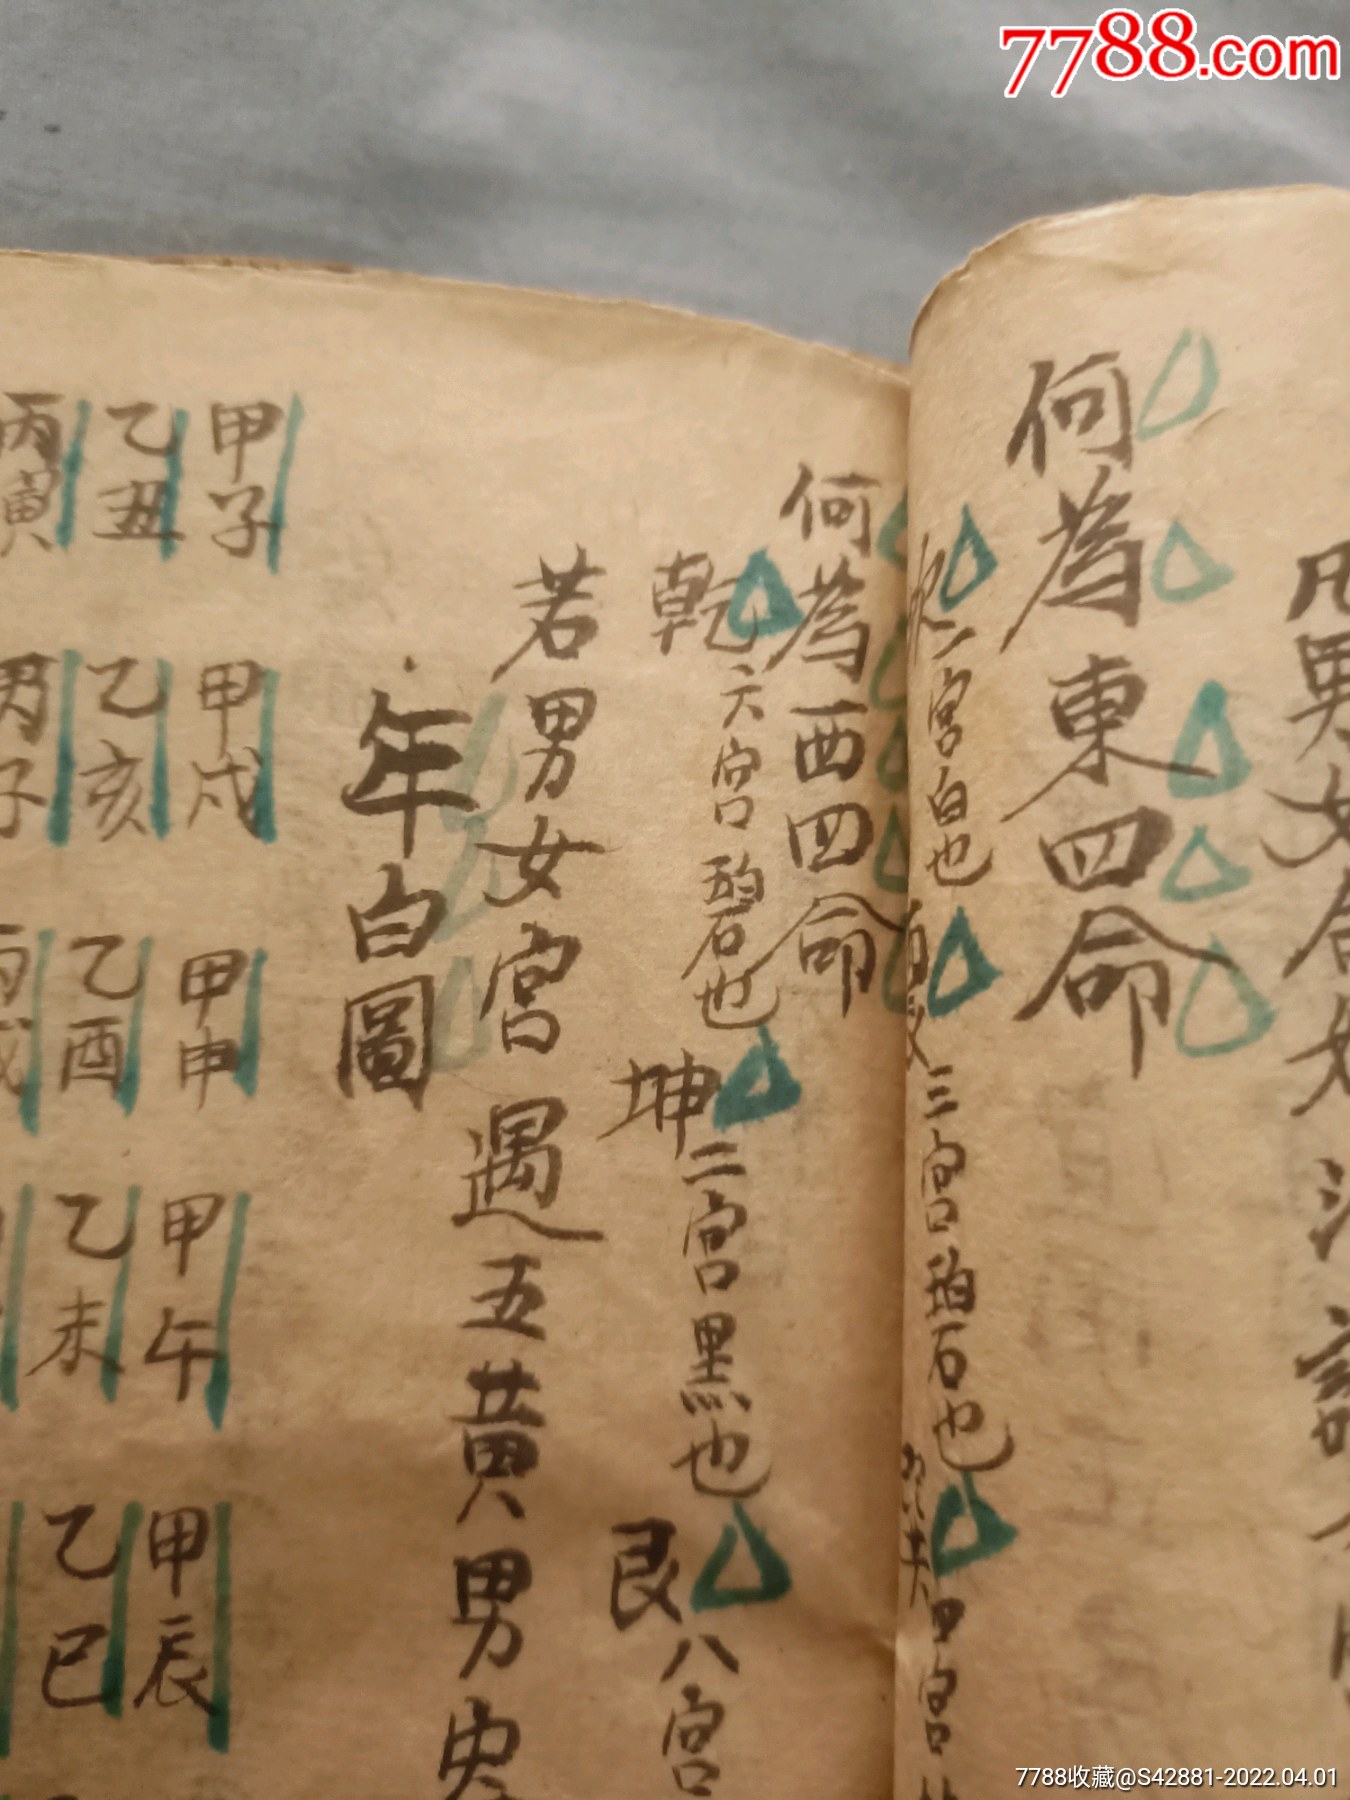 7788.com
凡男女合婚
何為東四命
一宮白也
三宮碧也
四宮
何為西四命
乾六宮碧也
坤二宮黑也
艮八宮
若男女宮遇五黃男
年白圖
甲子
甲戌
甲申
甲午
甲辰
乙丑
乙亥
乙酉
乙未
乙巳
丙寅
丙子
丙戌
7788收藏@S42881-2022.04.01